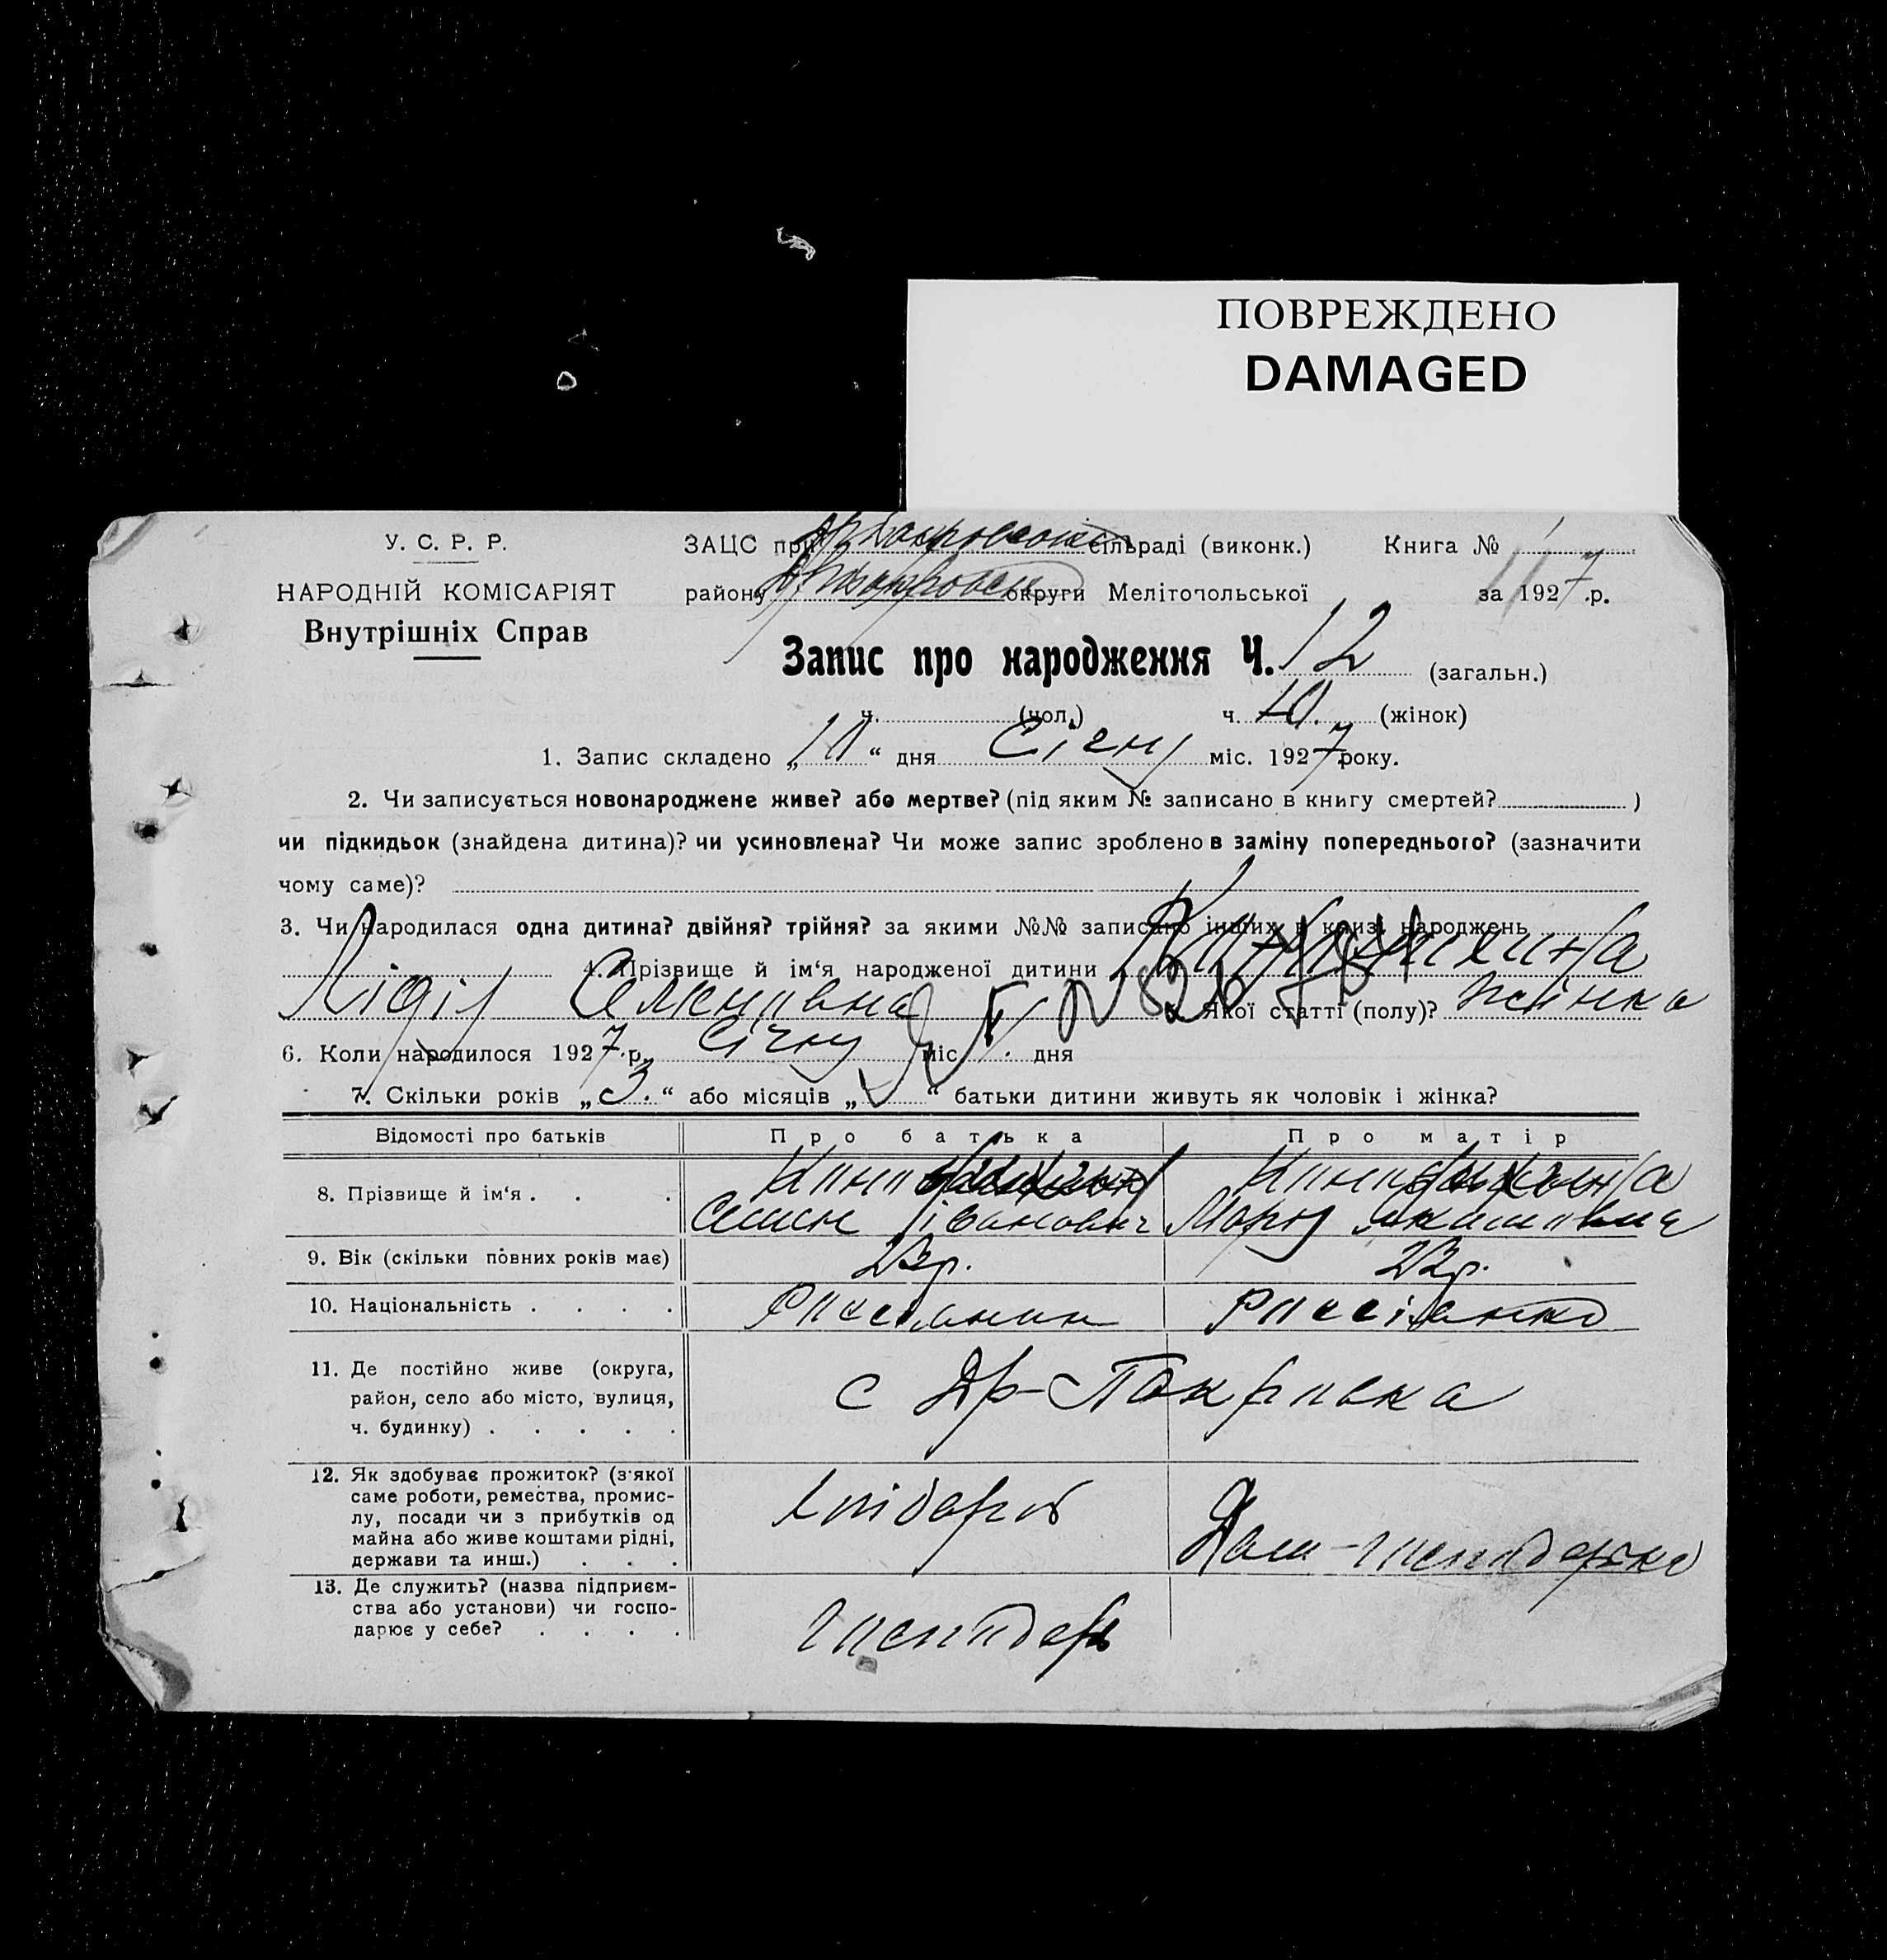 ПОВРЕЖДЕНО
DAMAGED
У. С. Р. Р.
НАРОДНІЙ КОМІСАРІЯТ
Внутрішніх Справ
ЗАЦС при сільраді (виконк.) Книга №
району округи Мелітопольської за 1927 р.
Запис про народження Ч. 12 (загальн.)
ч. (чол.) ч. 10. (жінок)
1. Запис складено „10“ дня Січню міс. 1927 року.
2. Чи записується новонароджене живе? або мертве? (під яким № записано в книгу смертей? )
чи підкидьок (знайдена дитина)? чи усиновлена? Чи може запис зроблено в заміну попереднього? (зазначити
чому саме)?
3. Чи народилася одна дитина? двійня? трійня? за якими №№ записано інших в книзі народжень
4. Прізвище й ім‘я народженої дитини
Лідія Семенівна Якої статті (полу)? жінка
6. Коли народилося 1927 р. Січню міс. дня
7. Скільки років „3.“ або місяців „ “ батьки дитини живуть як чоловік і жінка?
Відомості про батьків Про батька Про матір
8. Прізвище й ім‘я . . .
Семен Іванович
9. Вік (скільки повних років має) 23 р. 22 р.
10. Національність . . . .
11. Де постійно живе (округа,
район, село або місто, вулиця,
ч. будинку) . . . . .
с Др-Покровка
12. Як здобуває прожиток? (з‘якої
саме роботи, ремества, промис-
лу, посади чи з прибутків од
майна або живе коштами рідні,
держави та инш.) . . .
хлібороб
13. Де служить? (назва підприєм-
ства або установи) чи госпо-
дарює у себе? . . . .